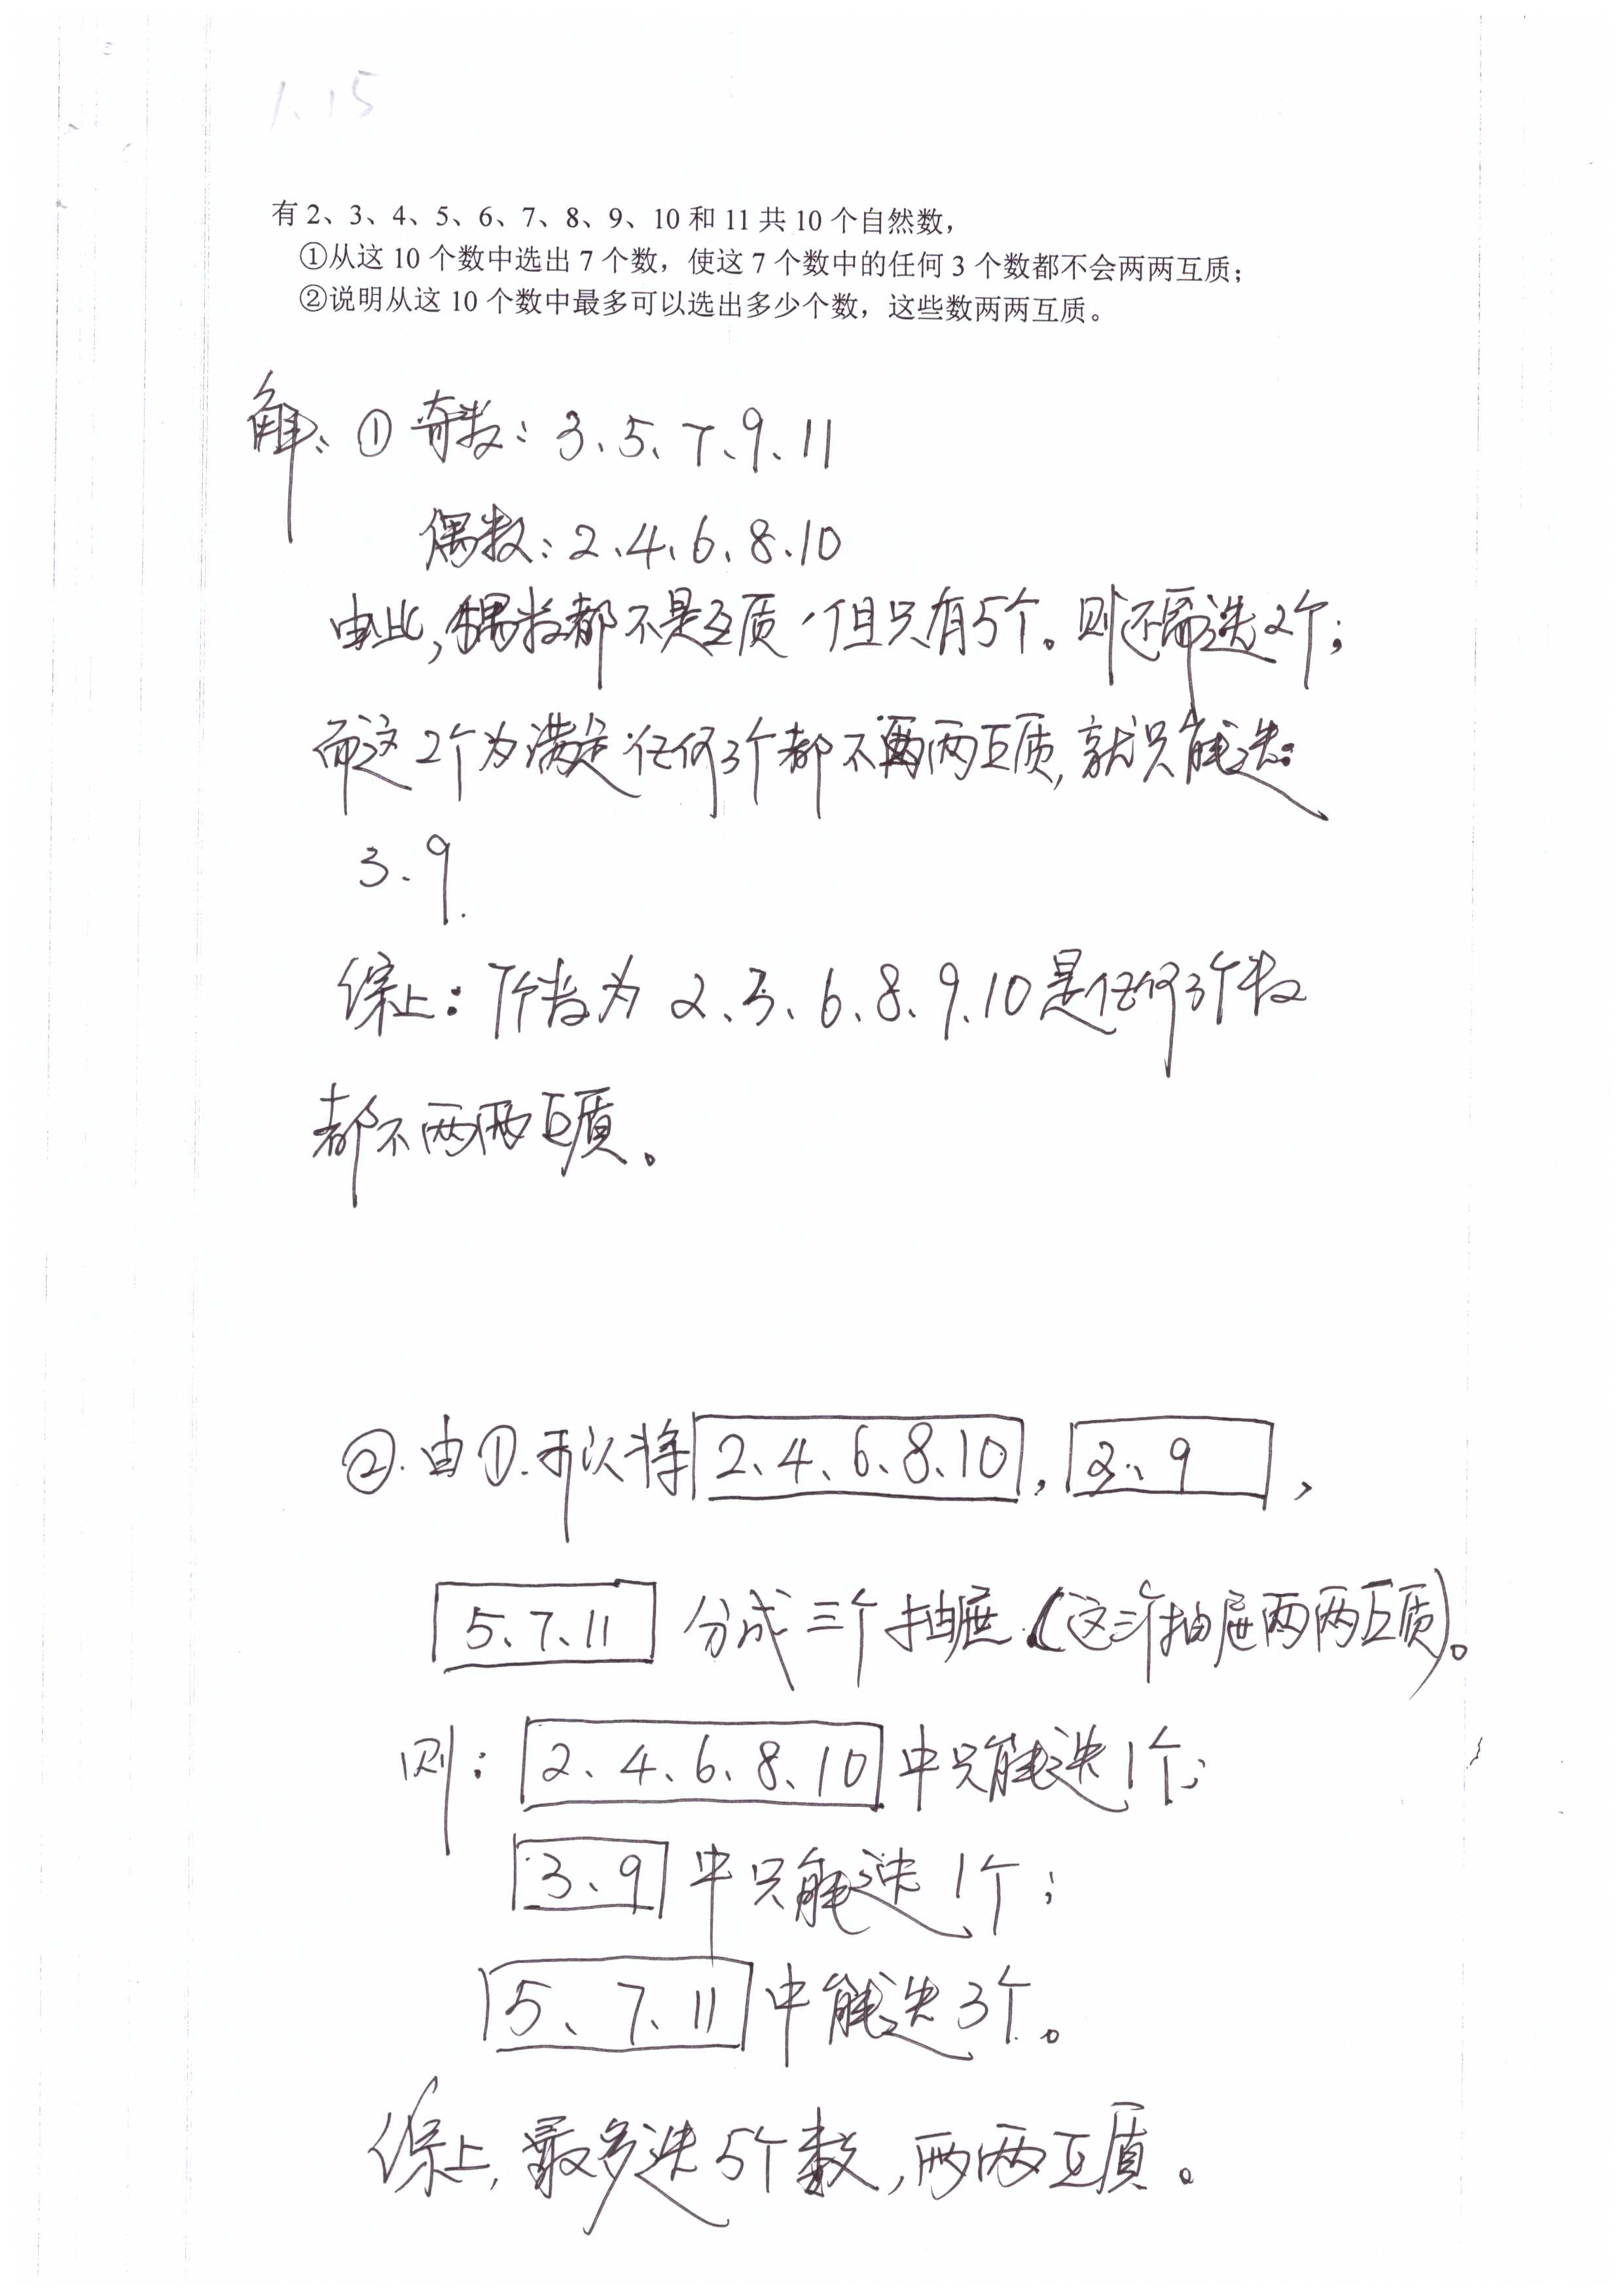 1.15
有 2、3、4、5、6、7、8、9、10 和 11 共 10 个自然数，
①从这 10 个数中选出 7 个数，使这 7 个数中的任何 3 个数都不会两两互质；
②说明从这 10 个数中最多可以选出多少个数，这些数两两互质。
解：① 奇数：3、5、7、9、11
偶数：2、4、6、8、10
由此，偶数都不是互质，但只有5个。则还需选2个；
而这2个为满足任何3个都不两两互质，就只能选：
3、9.
综上：7个数为 2、3、6、8、9、10是任何3个数
都不两两互质。
②.由①.可以将 2、4、6、8、10，3、9，
5、7、11 分成三个抽屉.(这三个抽屉两两互质)。
则：2、4、6、8、10 中只能选1个；
3、9 中只能选1个；
5、7、11 中能选3个。
综上，最多选5个数，两两互质。